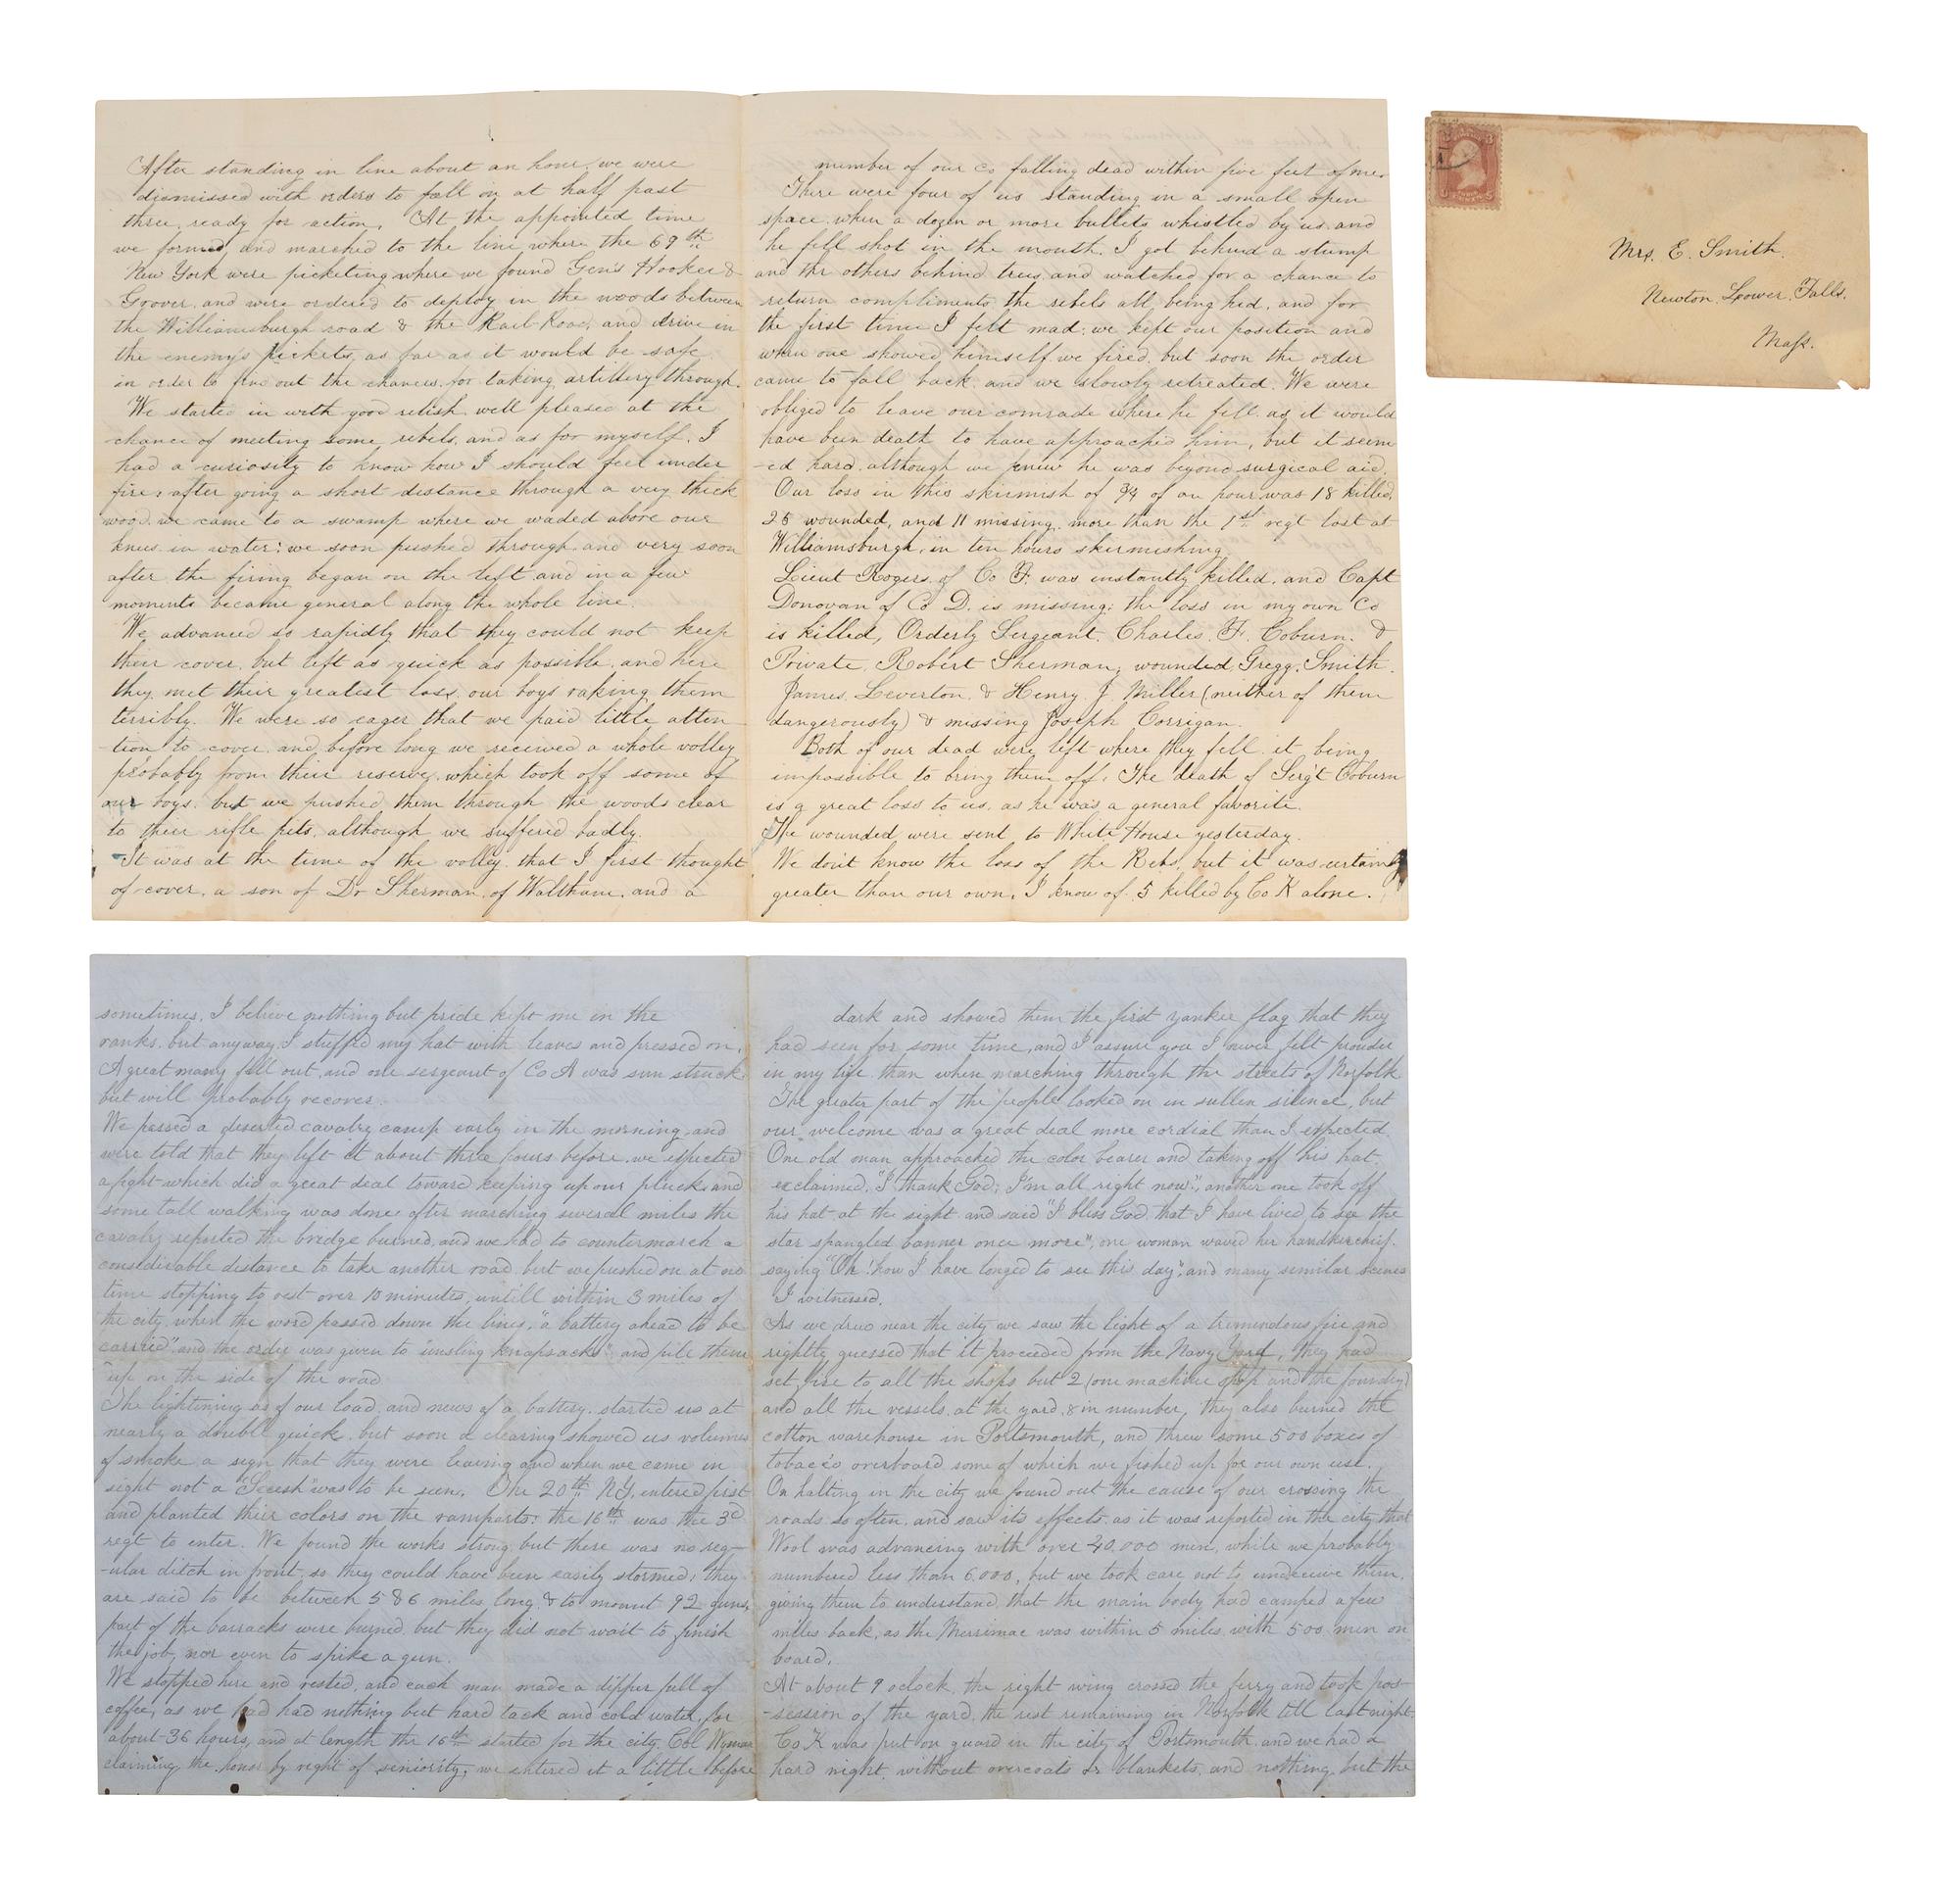 After standing in line about an hour, we were
dismissed with orders to fall on at half past
three, ready for action. At the appointed time
we formed, and marched to the line where the 69th
New York were picketing where we found Gen's Hooker &
Grover, and were ordered to deploy in the woods between
the Williamsburgh road & the Rail Road, and drive in
the enemy's pickets, as far as it would be safe
in order to find out the chances for taking artillery through.
We started in with good relish well pleased at the
chance of meeting some rebels, and as for myself, I
had a curiosity to know how I should feel under
fire; after going a short distance through a very thick
wood, we came to a swamp where we waded above our
knees in water: we soon pushed through and very soon
after the firing began on the left and in a few
moments became general along the whole line.
We advanced so rapidly that they could not keep
their cover, but left as quick as possible, and here
they met their greatest loss, our boys raking them
terribly. We were so eager that we paid little atten-
-tion to cover, and, before long we received a whole volley
probably from their reserve, which took off some of
our boys, but we pushed them through the woods clear
to their rifle pits, although we suffered badly.
It was at the time of the volley that I first thought
of cover, a son of Dr Sherman, of Waltham, and a
number of our co falling dead within five feet of me.
There were four of us standing in a small open
space, when a dozen or more bullets whistled by us, and
he fell shot in the mouth. I got behind a stump
and the others behind trees, and watched for a chance to
return compliments the rebels all being hid, and for
the first time I felt mad; we kept our position and
when one showed himself we fired, but soon the order
came to fall back, and we slowly retreated. We were
obliged to leave our comrade where he fell, as it would
have been death to have approached him, but it seem
-ed hard, although we knew he was beyond surgical aid.
Our loss in this skirmish of ¾ of an hour was 18 killed,
25 wounded, and 11 missing, more than the 1st regt lost at
Williamsburgh, in ten hours skirmishing.
Lieut Rogers, of Co F. was instantly killed, and Capt
Donovan of Co D. is missing; the loss in my own Co
is killed, Orderly Sergeant, Charles, F. Coburn, &
Private, Robert Sherman; wounded, Gregg, Smith,
James, Leverton, & Henry J Miller (neither of them
dangerously) & missing Joseph Corrigan.
Both of our dead were left where they fell it being
impossible to bring them off. The death of Serg't Coburn
is a great loss to us, as he was a general favorite.
The wounded were sent, to White House yesterday.
We don't know the loss of the Rebs, but it was certainly
greater than our own, I know of 5 killed by Co K alone.
Mrs. E. Smith.
Newton Lower Falls.
Mass.
sometimes. I believe nothing but pride kept me in the
ranks, but anyway I stuffed my hat with leaves and pressed on.
A great many fell out, and one sergeant of Co A was sun struck
but will probably recover.
We passed a deserted cavalry camp early in the morning, and
were told that they left it about three hours before, we expected
a fight which did a great deal toward keeping up our pluck, and
some tall walking was done: after marching several miles the
cavalry reported the bridge burned, and we had to countermarch a
considerable distance to take another road, but we pushed on at no
time stopping to rest over 10 minutes, untill within 3 miles of
the city, when the word passed down the lines, "a battery ahead to be
carried", and the order was given to "unsling knapsacks" and pile them
up on the side of the road.
The lightning of our load, and news of a battery, started us at
nearly a double quick, but soon a clearing showed us volumes
of smoke, a sign that they were leaving and when we came in
sight not a "Secesh" was to be seen. The 20th N.Y. entered first
and planted their colors on the ramparts: the 16th was the 3d
regt to enter. We found the works strong, but there was no reg-
-ular ditch in front, so they could have been easily stormed; they
are said to be between 5 & 6 miles long, & to mount 92 guns,
part of the barracks were burned, but they did not wait to finish
the job, nor even to spike a gun.
We stopped here and rested, and each man made a dipper full of
coffee, as we had had nothing but hard tack and cold water, for
about 36 hours, and at length the 16th started for the city, Col Wyman
claiming the honor by right of seniority; we entered it a little before
dark and showed them the first yankee flag that they
had seen for some time, and I assure you I never felt prouder
in my life than when marching through the streets of Norfolk
The greater part of the people looked on in sullen silence, but
our welcome was a great deal more cordial than I expected.
One old man approached the color bearer and taking off his hat,
exclaimed, "I thank God; I'm all right now", another one took off
his hat at the sight and said "I bless God, that I have lived, to see the
star spangled banner once more", one woman waved her handkerchief,
saying "Oh! how I have longed to see this day", and many similar scenes
I witnessed.
As we drew near the city we saw the light of a tremendous fire, and
rightly guessed that it proceeded from the Navy Yard, they had
set fire to all the shops but 2 (one machine shop and the foundry)
and all the vessels, at the yard, 8 in number, they also burned the
cotton warehouse in Portsmouth, and threw some 500 boxes of
tobacco overboard some of which we fished up for our own use.
On halting in the city we found out the cause of our crossing the
roads so often, and saw its effects, as it was reported in the city that
Wool was advancing with over 40,000 men, while we probably
numbered less than 6,000, but we took care not to undeceive them,
giving them to understand, that the main body had camped a few
miles back, as the Merrimac was within 5 miles, with 500 men on
board.
At about 9 oclock, the right wing crossed the ferry and took pos-
-session of the yard, the rest remaining in Norfolk till last night.
Co K was put on guard in the city of Portsmouth, and we had a
hard night, without overcoats or blankets, and nothing but the